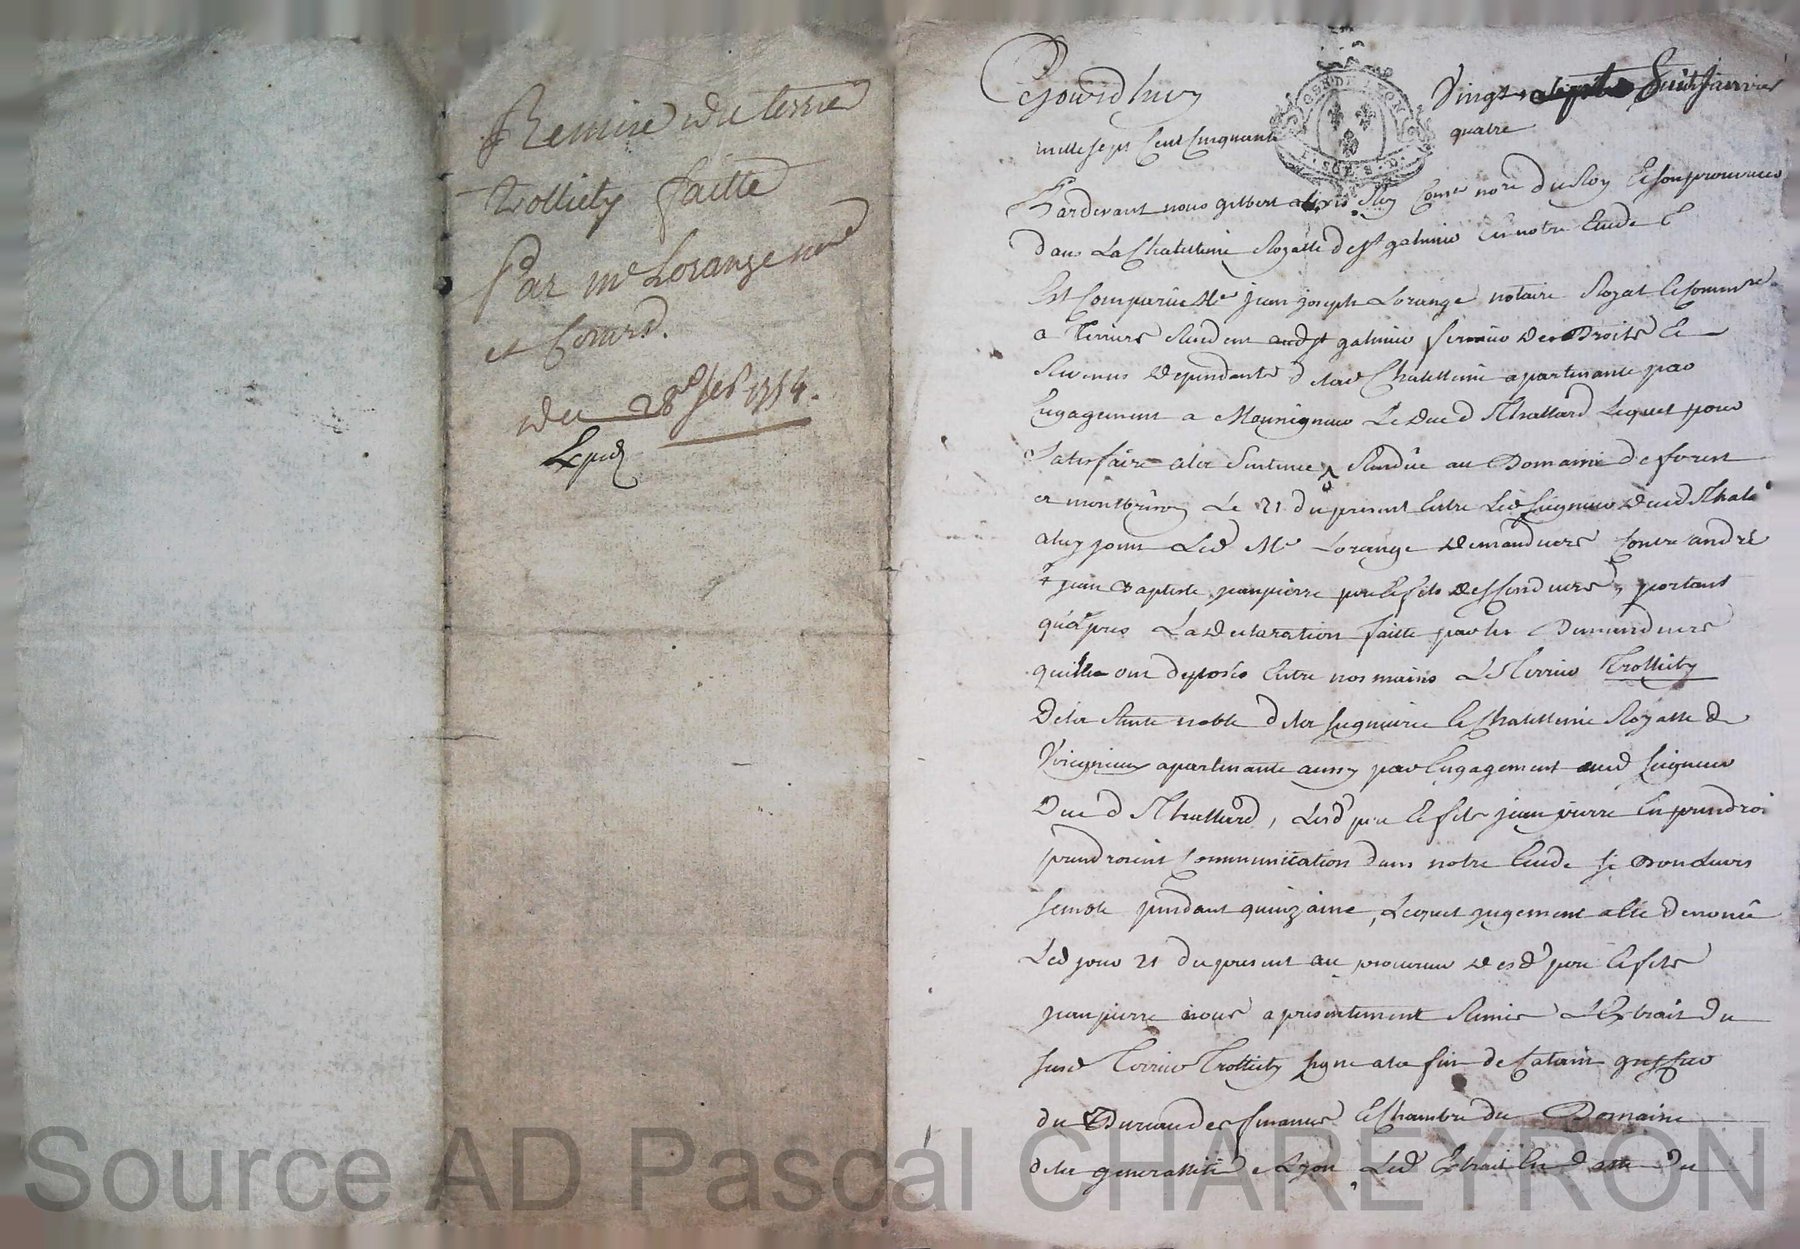 Remise du terrie
Trolliety faitte
Par me Lorange nre
et Comre.
du 28e Jer 1754.
Expd
Cejourdhuy Vingt huit Janvier
mille sept Cent Cinquante quatre
GEN. DE LYON
Pardevant nous gilbert alexis Roy Conr nore du Roy & son procureur
dans La Chatellenie Royalle de st galmier en notre Etude
Est Comparu Me jean joseph Lorange notaire Royal & Commre
a Terriers Resident audst galmier fermier des Droits &
Revenus dependants de lad Chatellenie apartenante par
Engagement a Monsigneur Le Duc d Thallard Lequel pour
Satisfaire a la Sentence Rendue au Domaine de forest
a montbrison Le 21 du present Entre Led Seigneur duc d Thalard
a luy joint Led Me Lorange demandeurs Contre andré
& jean Baptiste jeanpierre pere & fils deffendeurs, portant
qu'apres La declaration faitte par les Demandeurs
quils ont deposés Entre nos mains Le Terrier Trolliety
De la Rente noble de la seigneurie & Chatellenie Royalle de
Virigneux apartenante aussy par Engagement aud Seigneur
Duc d Thallard, Lesd pere & fils jean pierre En prendroi
prendroient Communication dans notre Etude si Bon Leurs
semble pendant quinzaine, Lequel jugement a Eté denoncé
Led jour 21 du present au procureur desd pere & fils
jeanpierre nous a presentement Remis L'Extrait du
susd Terrier Trolliety signé a la fin de Catain greffier
du Bureau des finances & Chambre du Domaine
de la generallité de Lyon Led Extrait En datte du
Source AD Pascal CHAREYRON